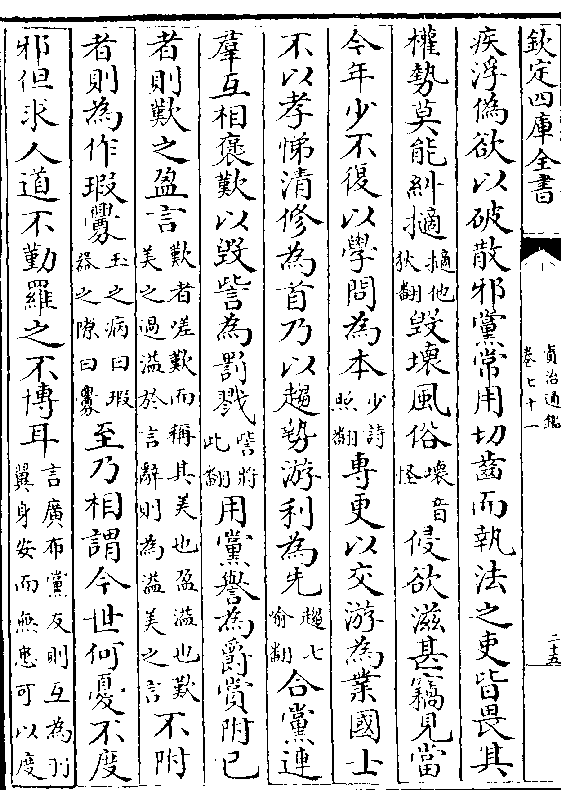 欽定四庫全書
資治通鑑
卷七十一
二十五
疾浮偽欲以破散邪黨常用切齒而執法之吏皆畏其
權勢莫能糾擿擿他狄翻毀壞風俗壞音怪侵欲滋甚竊見當
今年少不復以學問為本少詩照翻專更以交游為業國士
不以孝悌清修為首乃以趨勢游利為先趨七喻翻合黨連
羣互相褒歎以毀訾為罰戮訾將此翻用黨譽為爵賞附已
者則歎之盈言歎者嗟歎而稱其美也盈溢也歎美之過溢於言辭則為溢美之言不附
者則為作瑕釁玉之病曰瑕器之隙曰釁至乃相謂今世何憂不度
邪但求人道不勤羅之不博耳言廣布黨友則互為羽翼身安而無患可以度